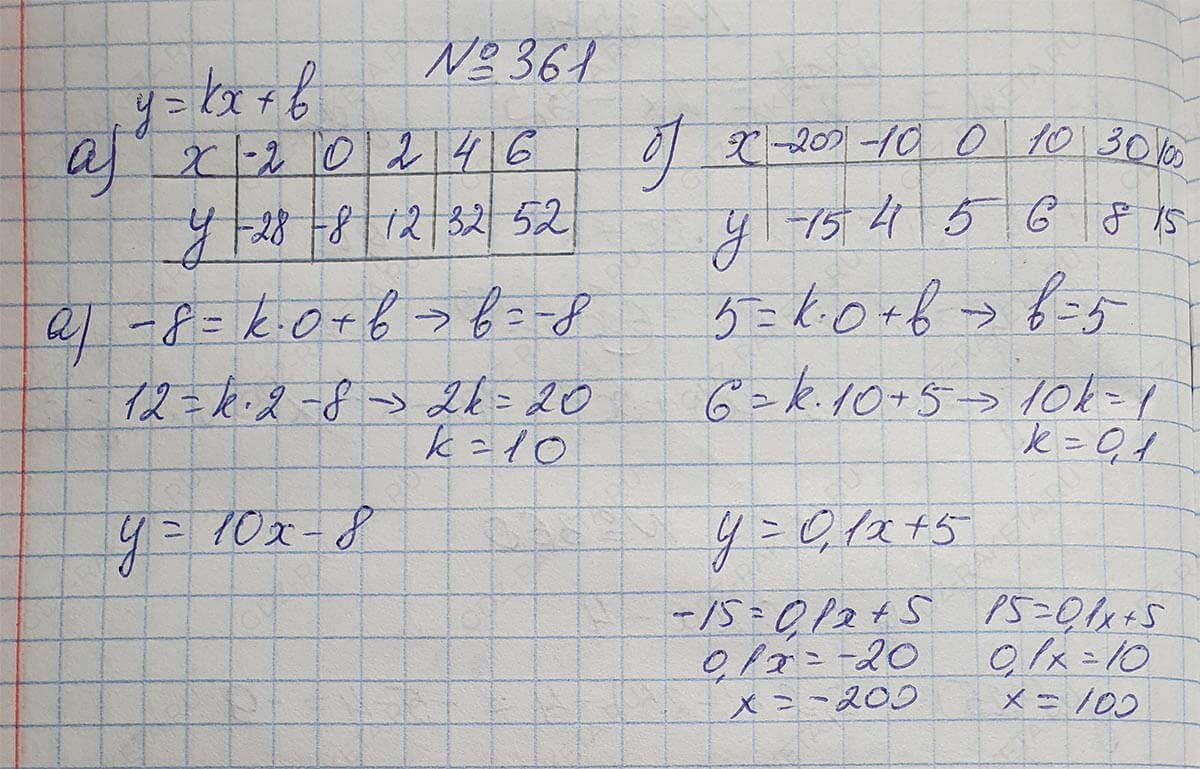 №361
y = kx + b
а) x | -2 | 0 | 2 | 4 | 6
y | -28 | -8 | 12 | 32 | 52
б) x | -200 | -10 | 0 | 10 | 30 | 100
y | -15 | 4 | 5 | 6 | 8 | 15
а) -8 = k·0 + b → b = -8
12 = k·2 - 8 → 2k = 20
k = 10
y = 10x - 8
5 = k·0 + b → b = 5
6 = k·10 + 5 → 10k = 1
k = 0,1
y = 0,1x + 5
-15 = 0,1x + 5
0,1x = -20
x = -200
15 = 0,1x + 5
0,1x = 10
x = 100